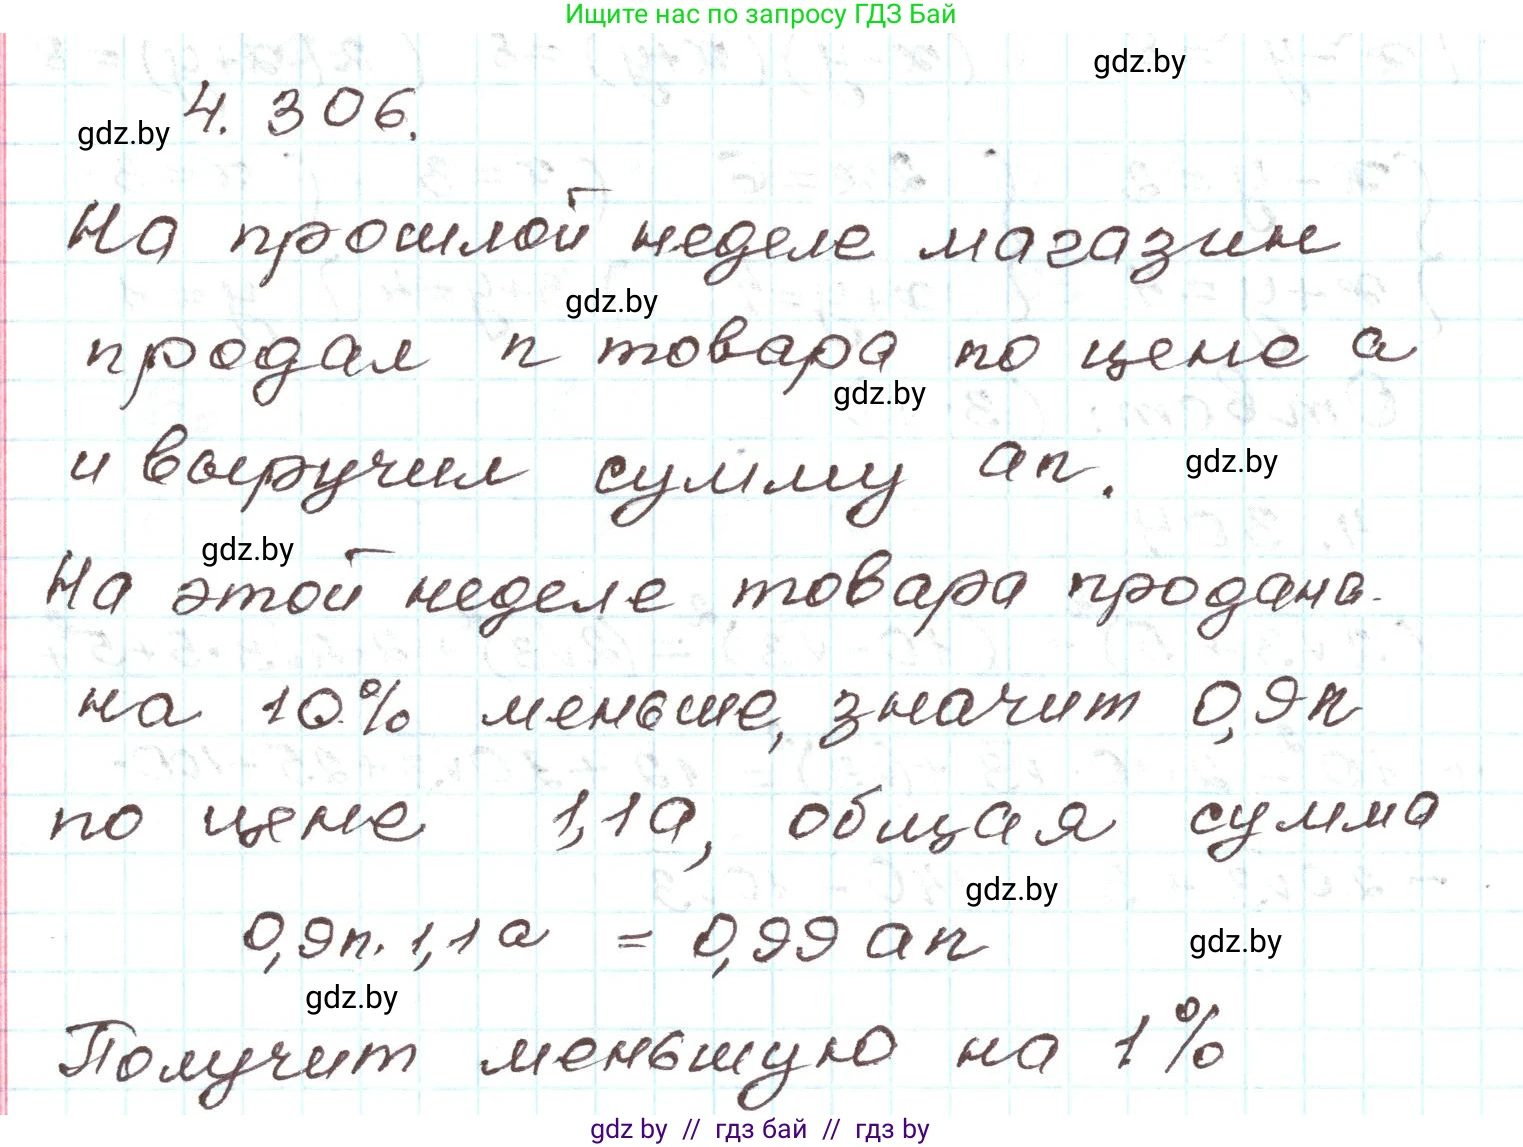 Ищите нас по запросу ГДЗ Бай
gdz.by
4.306.
gdz.by
На прошлой неделе магазин
gdz.by
продал n товара по цене a
gdz.by
и выручил сумму an.
gdz.by
gdz.by
На этой неделе товара продано
на 10% меньше, значит 0,9n
по цене 1,1a, общая сумма
gdz.by
0,9n·1,1a = 0,99an
gdz.by
gdz.by
Получит меньшую на 1%
gdz by // гдз бай // гдз by